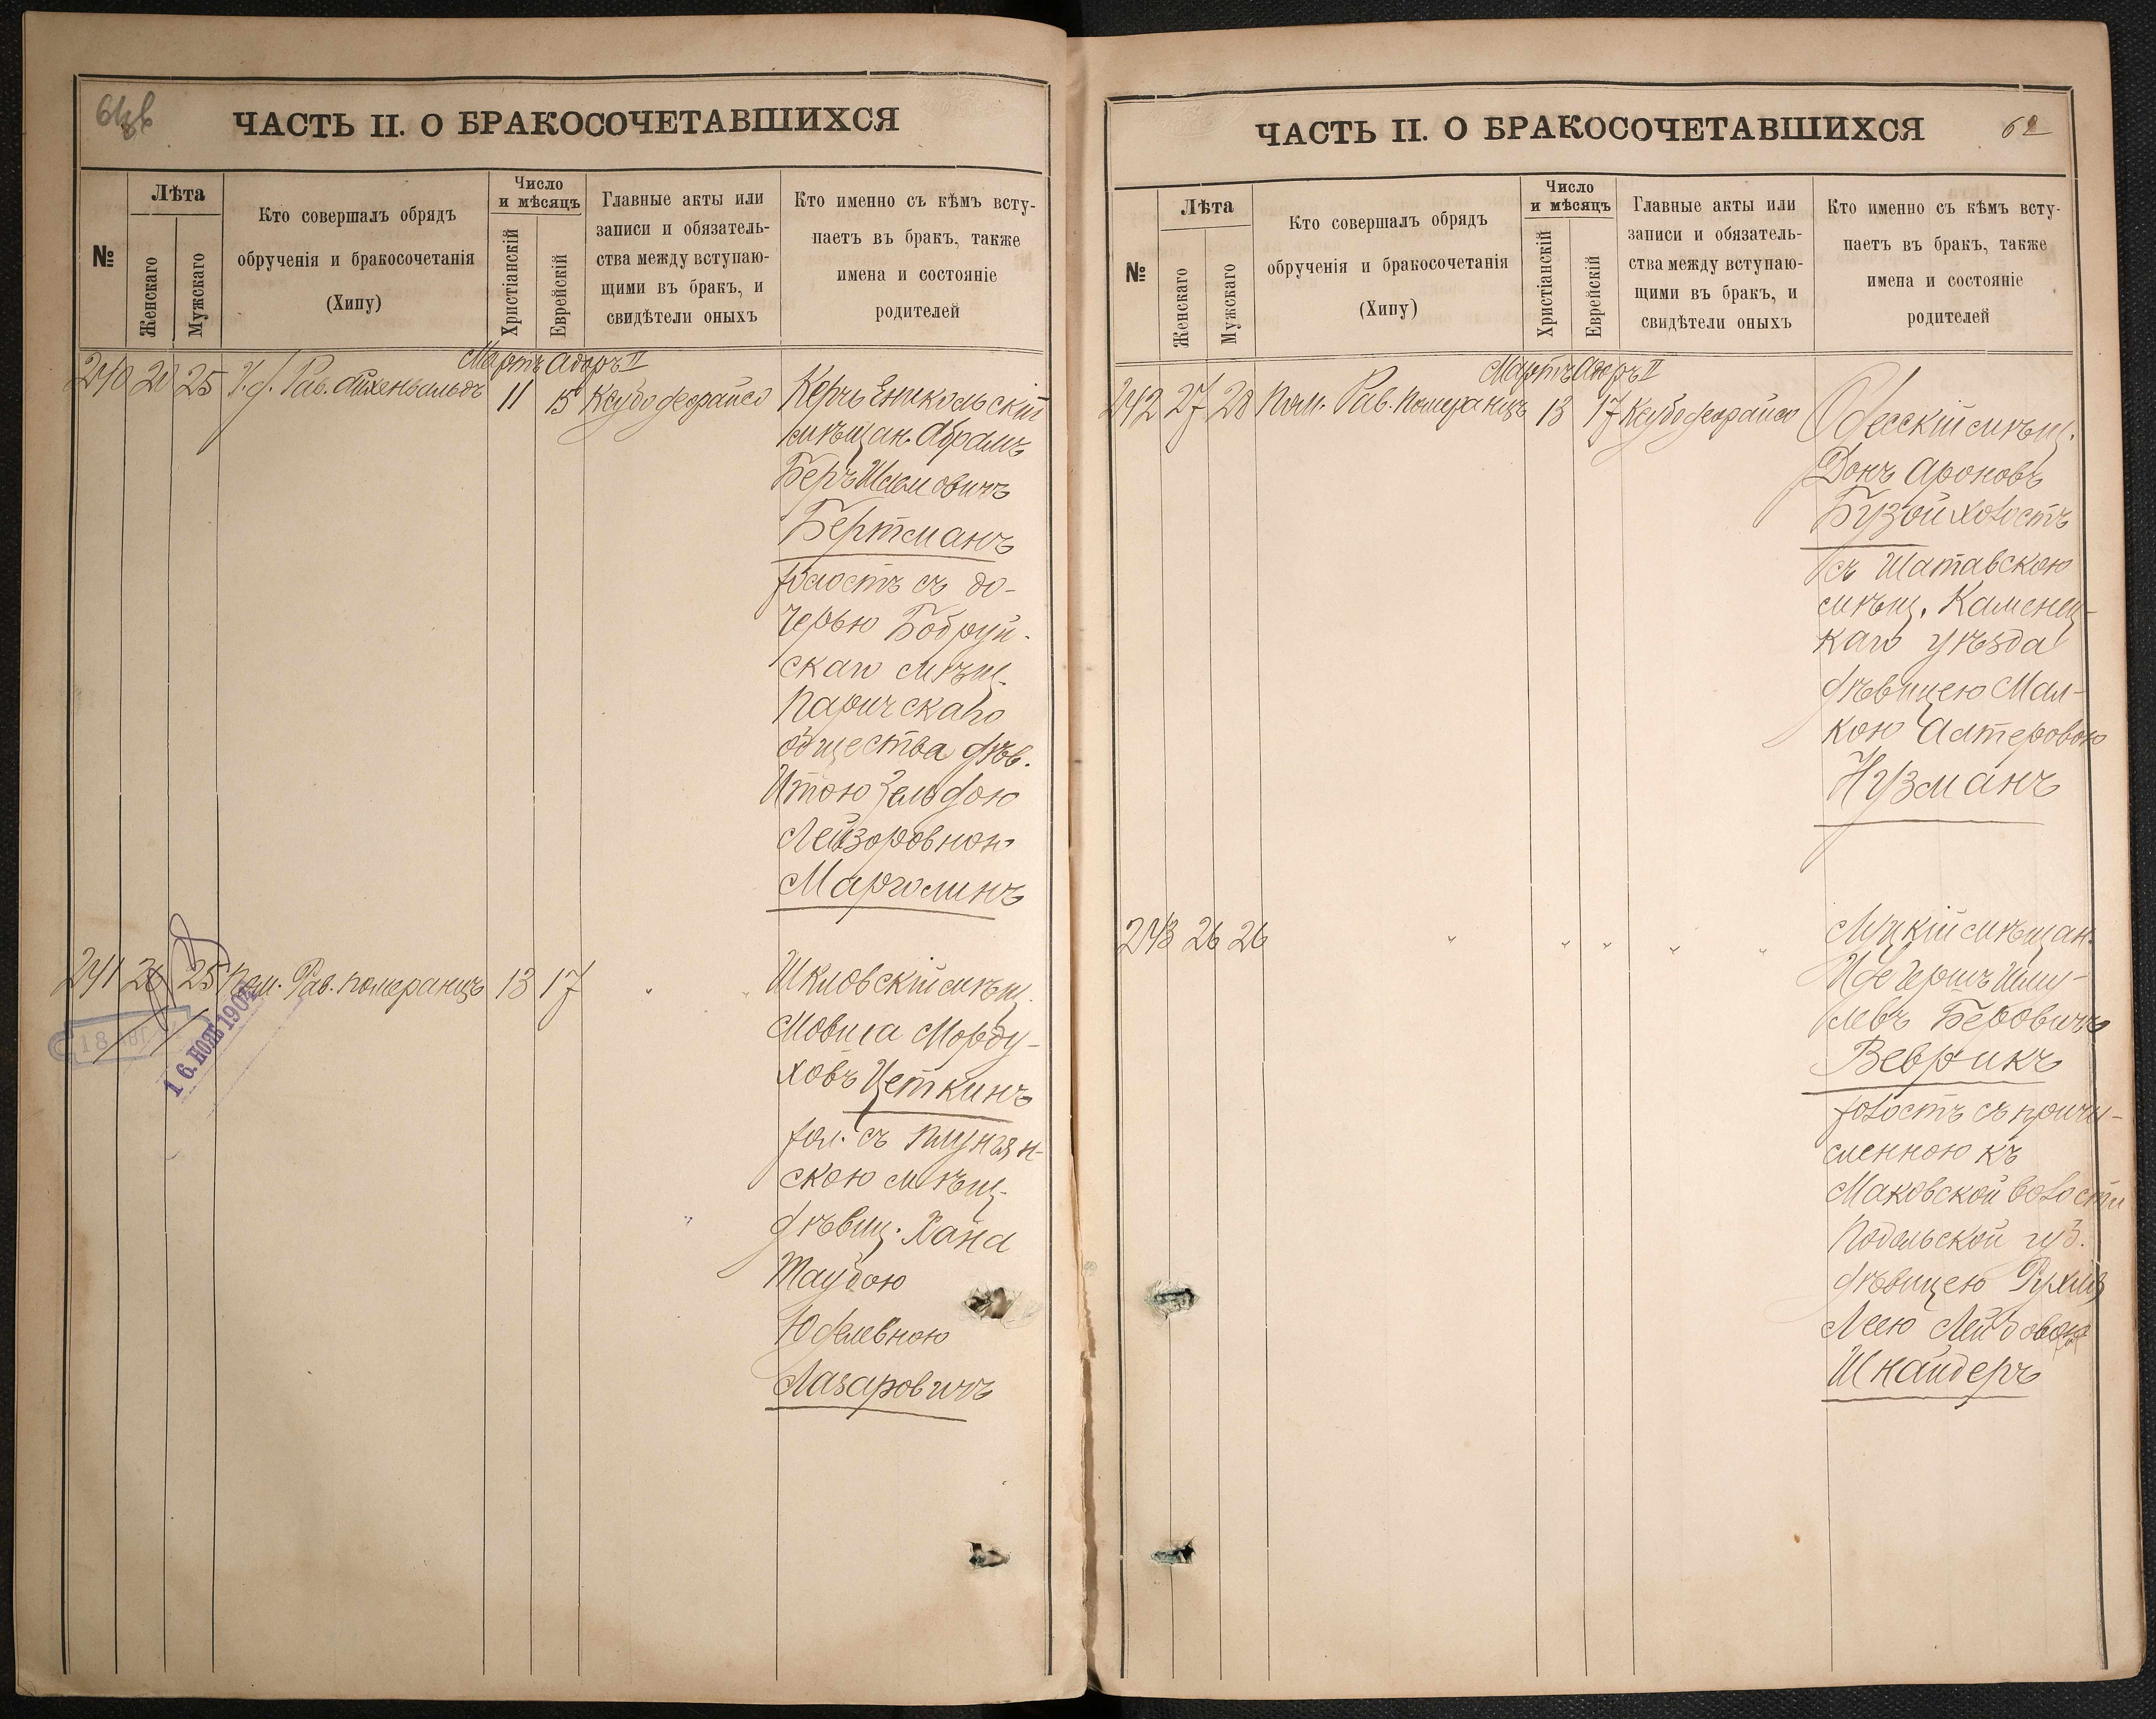 ЧАСТЬ II. О БРАКОСОЧЕТАВШИХСЯ
№
Лѣта
Женскаго
Мужскаго
Кто совершалъ обрядъ
обрученія и бракосочетанія
(Хипу)
Число
и мѣсяцъ
Христіанскій
Еврейскій
Главные акты или
записи и обязатель-
ства между вступаю-
щими въ бракъ, и
свидѣтели оныхъ
Кто именно съ кѣмъ всту-
паетъ въ бракъ, также
имена и состояніе
родителей
Мартъ Адаръ II
240 20 25 И. д. Рав. Айхенвальдъ 11 15
Керчь Еникольскій
мѣщан. Абрамъ
Беръ
Бертманъ
холостъ съ до-
черью Бобруй-
скаго мѣщ.
Паричскаго
общества дѣв.
Итою Зельдою
Лейзоровною
Марголинъ
241 25 Пом. Рав. Померанцъ 13 17 " "
Шкловскій мѣщ.
Мовша Морду-
ховъ Цеткинъ
хол. съ Плунгян-
скою мѣщ.
дѣвиц. Хана
Таубою
Юделевною
Лазаровичъ
16. НОЯ. 1904
ЧАСТЬ II. О БРАКОСОЧЕТАВШИХСЯ
62
№
Лѣта
Женскаго
Мужскаго
Кто совершалъ обрядъ
обрученія и бракосочетанія
(Хипу)
Число
и мѣсяцъ
Христіанскій
Еврейскій
Главные акты или
записи и обязатель-
ства между вступаю-
щими въ бракъ, и
свидѣтели оныхъ
Кто именно съ кѣмъ всту-
паетъ въ бракъ, также
имена и состояніе
родителей
Мартъ Адаръ II
242 27 28 Пом. Рав. Померанцъ 13 17
Одесскій мѣщ.
Донъ Ароновъ
Бузой холостъ
съ Шатавскою
мѣщ. Каменец-
каго уѣзда
дѣвицею Мал-
кою Алтеровою
Нузманъ
243 26 26 " " " " "
Луцкій мѣщан.
Иде Гершъ Шму-
левъ Беровичъ
Веврикъ
холостъ съ причи-
сленною къ
Маковской волости
Подольской губ.
дѣвицею Рухля
Леею Лейбовою
Шнайдеръ